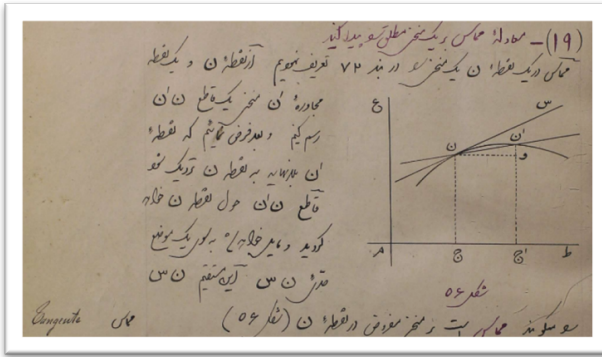 (۱۹) - معادلهٔ مماس بر یک منحنی مطلق سو پیدا کنید
مماس در یک نقطهٔ ن یک منحنی سو در بند ۷۲ تعریف نمودیم از نقطهٔ ن و یک نقطه
مجاورهٔ نَ منحنی یک قاطع ن نَ
رسم کنیم و بعد فرض نمائیم که نقطهٔ
نَ بلانهایه به نقطهٔ ن نزدیک شو
قاطع ن نَ حول نقطهٔ ن خواهد
گردید و مایل خواهد به سوی یک موضع
حدی ن س این مستقیم ن س
ع
س
ن
نَ
و
م
ج
جَ
ط
شکل ۵۶
سو میگویند مماس است بر منحنی مفروض در نقطهٔ ن (شکل ۵۶)
مماس
Tangente